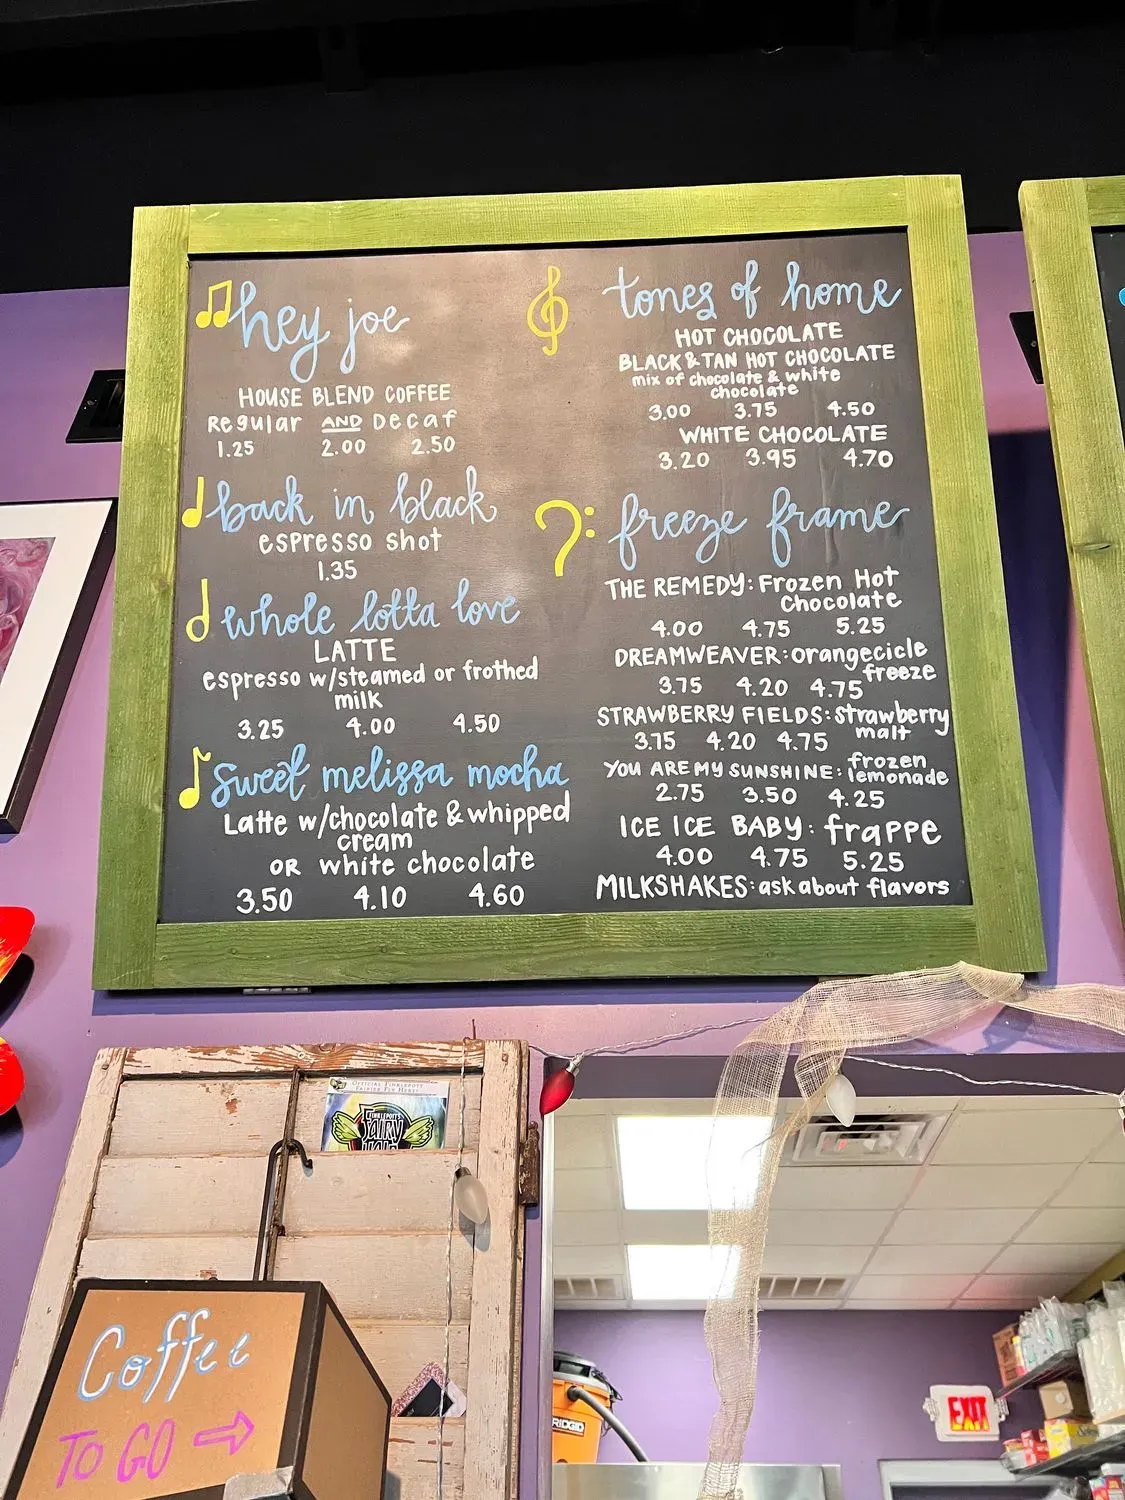 hey joe
HOUSE BLEND COFFEE
Regular AND Decaf
1.25 2.00 2.50
back in black
espresso shot
1.35
whole lotta love
LATTE
espresso w/steamed or frothed
milk
3.25 4.00 4.50
sweet melissa mocha
Latte w/chocolate & whipped
cream
OR white chocolate
3.50 4.10 4.60
tones of home
HOT CHOCOLATE
BLACK & TAN HOT CHOCOLATE
mix of chocolate & white
chocolate
3.00 3.75 4.50
WHITE CHOCOLATE
3.20 3.95 4.70
freeze frame
THE REMEDY: Frozen Hot
Chocolate
4.00 4.75 5.25
DREAMWEAVER: orangecicle
freeze
3.75 4.20 4.75
STRAWBERRY FIELDS: strawberry
malt
3.75 4.20 4.75
YOU ARE MY SUNSHINE: frozen
lemonade
2.75 3.50 4.25
ICE ICE BABY: frappe
4.00 4.75 5.25
MILKSHAKES: ask about flavors
FAIRY
Coffee
TO GO
RIDGID
EXIT